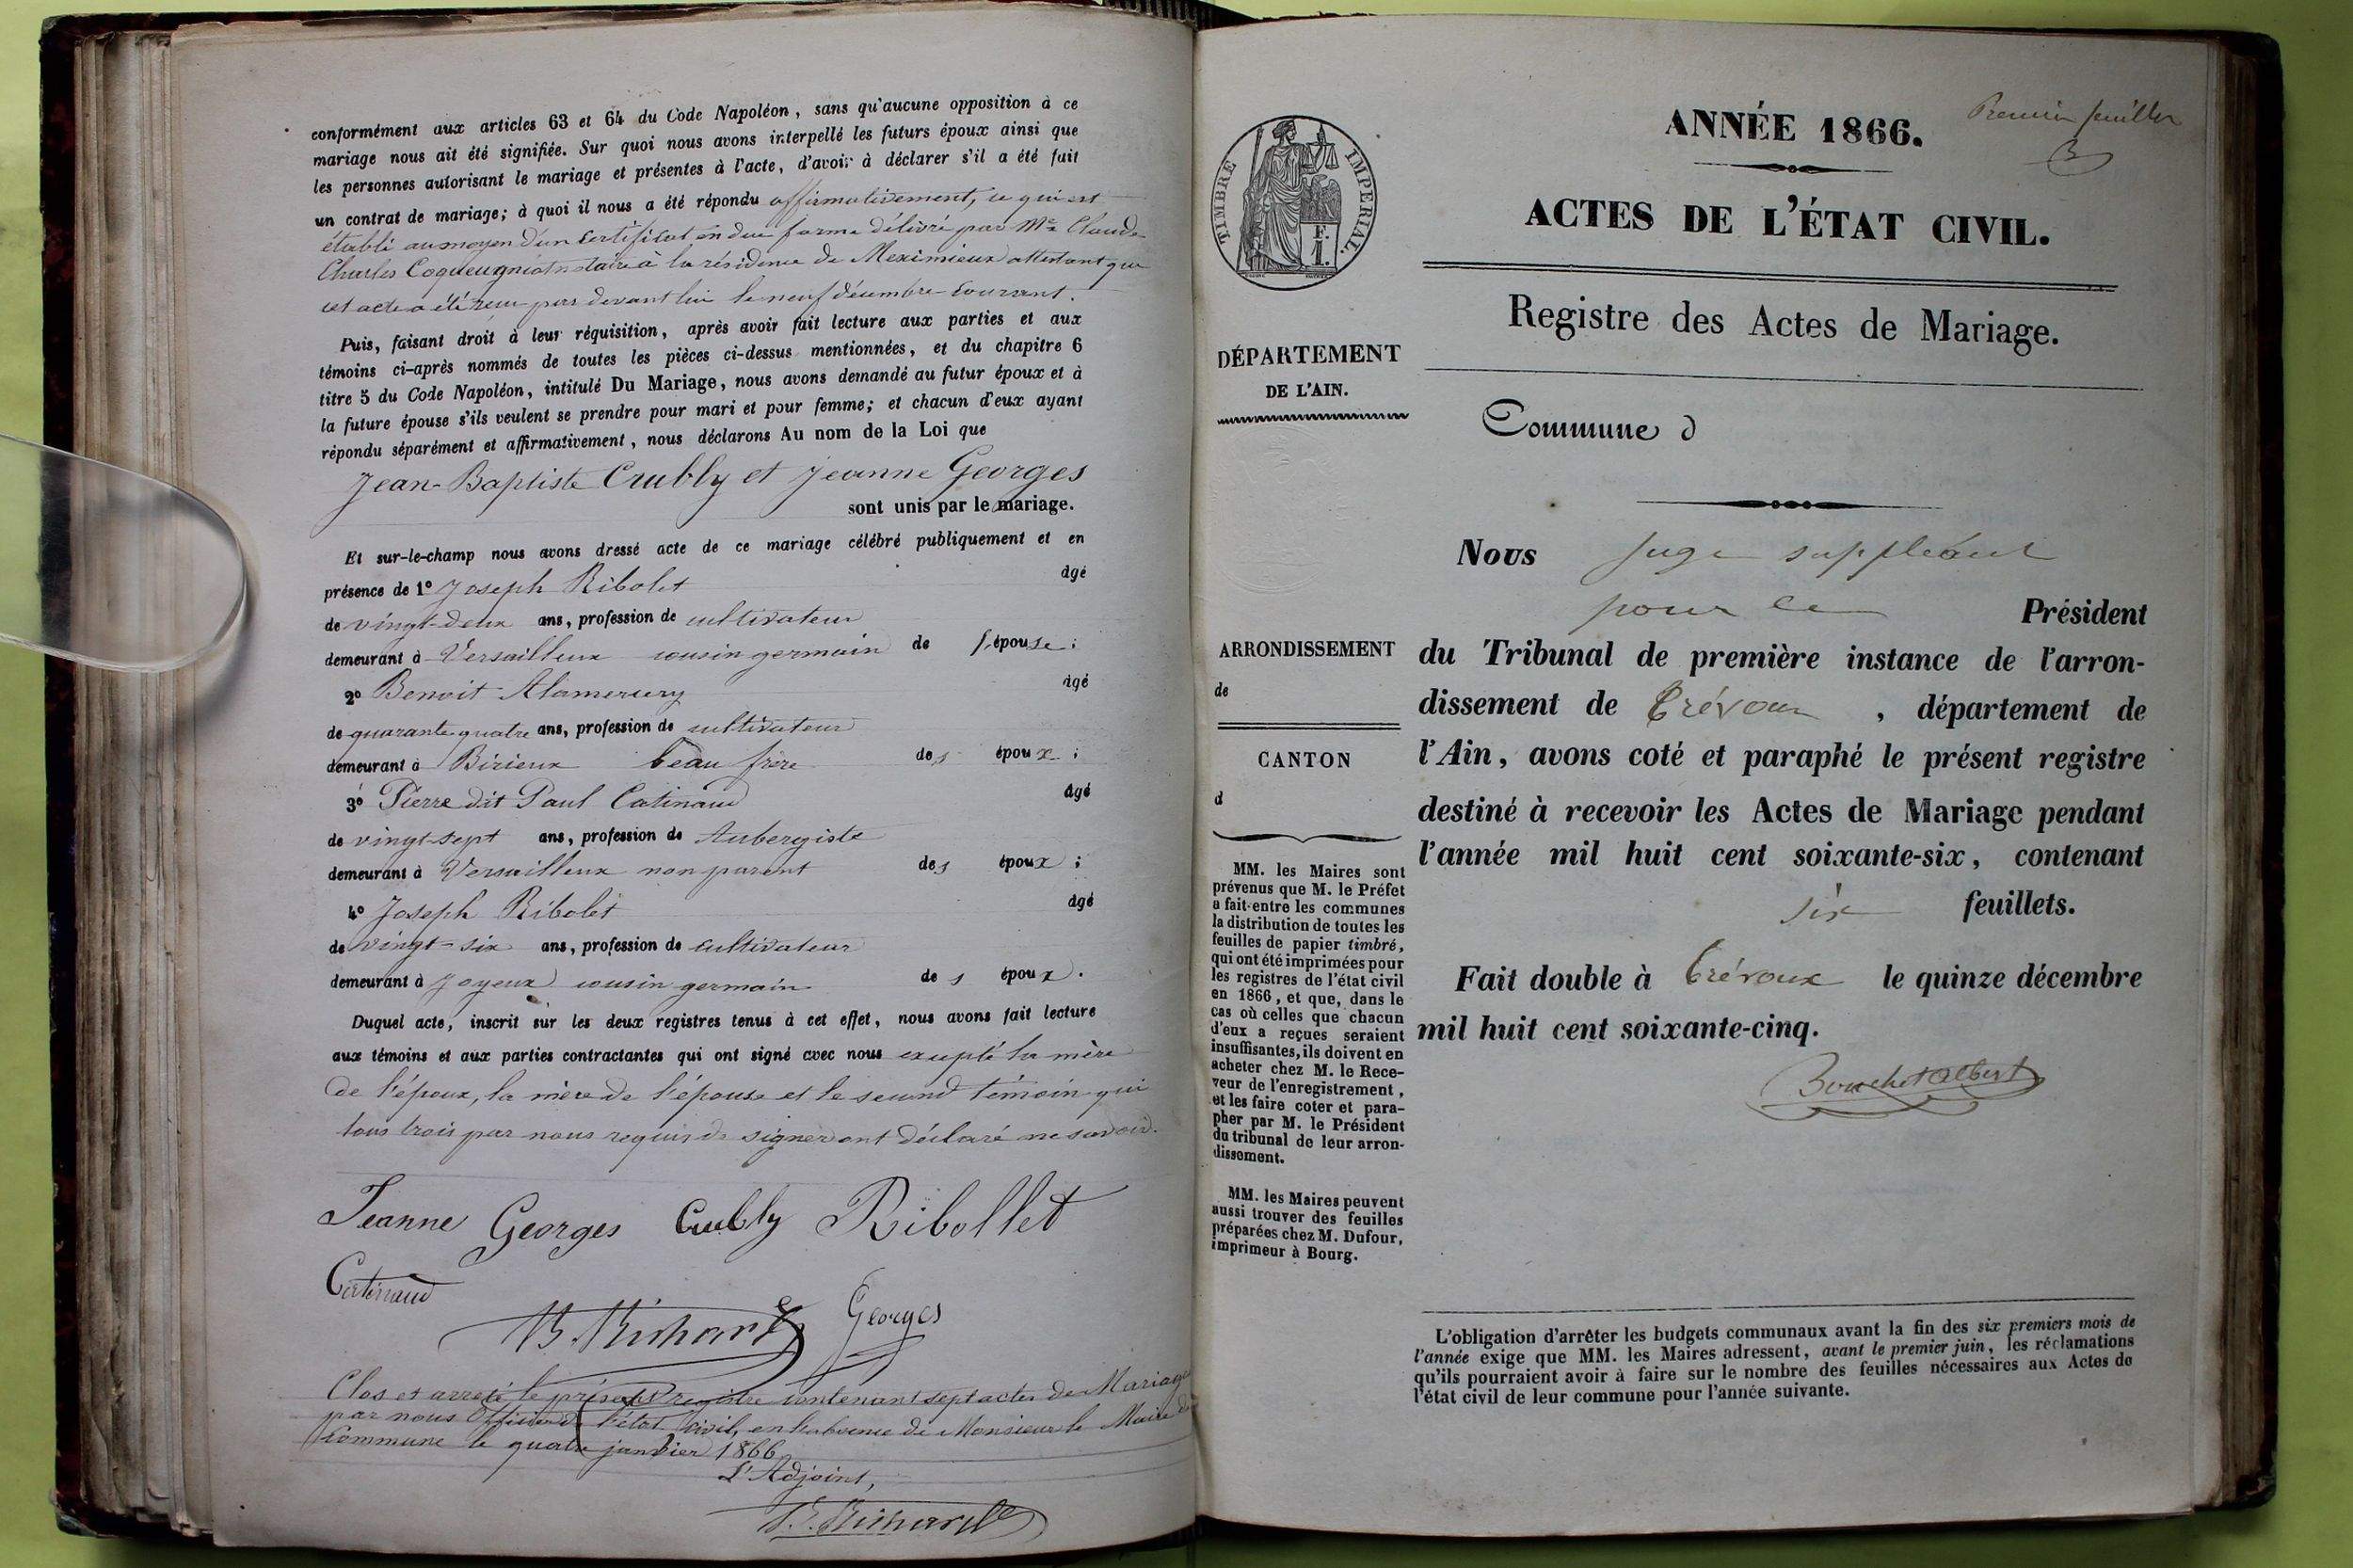 conformément aux articles 63 et 64 du Code Napoléon, sans qu'aucune opposition à ce
mariage nous ait été signifiée. Sur quoi nous avons interpellé les futurs époux ainsi que
les personnes autorisant le mariage et présentes à l'acte, d'avoir à déclarer s'il a été fait
un contrat de mariage; à quoi il nous a été répondu affirmativement, ce qui est
établi au moyen d'un certificat en due forme délivré par Me Claude
Charles Coqueugniot notaire à la résidence de Meximieux attestant que
cet acte a été reçu par devant lui le neuf décembre courant.
Puis, faisant droit à leur réquisition, après avoir fait lecture aux parties et aux
témoins ci-après nommés de toutes les pièces ci-dessus mentionnées, et du chapitre 6
titre 5 du Code Napoléon, intitulé Du Mariage, nous avons demandé au futur époux et à
la future épouse s'ils veulent se prendre pour mari et pour femme; et chacun d'eux ayant
répondu séparément et affirmativement, nous déclarons Au nom de la Loi que
Jean-Baptiste Crubly et Jeanne Georges
sont unis par le mariage.
Et sur-le-champ nous avons dressé acte de ce mariage célébré publiquement et en
présence de 1º Joseph Ribolet âgé
de vingt-deux ans, profession de cultivateur
demeurant à Versailleux cousin germain de l'épouse;
2º Benoit Alamercery âgé
de quarante quatre ans, profession de cultivateur
demeurant à Birieux beau frère des époux;
3º Pierre dit Paul Catinaud âgé
de vingt-sept ans, profession de Aubergiste
demeurant à Versailleux non parent des époux;
4º Joseph Ribolet âgé
de vingt-six ans, profession de cultivateur
demeurant à Joyeux cousin germain des époux.
Duquel acte, inscrit sur les deux registres tenus à cet effet, nous avons fait lecture
aux témoins et aux parties contractantes qui ont signé avec nous excepté la mère
de l'époux, la mère de l'épouse et le second témoin qui
tous trois par nous requis de signer ont déclaré ne savoir.
Jeanne Georges Crubly Ribollet
Catinaud
B. Richard Georges
Clos et arreté le présent registre contenant sept actes de Mariage
par nous Officier de l'état civil, en l'absence de Monsieur le Maire de
commune le quatre janvier 1866
L'Adjoint,
B. Richard
Premier feuillet
ANNÉE 1866.
ACTES DE L'ÉTAT CIVIL.
Registre des Actes de Mariage.
TIMBRE IMPERIAL.
F.
1.
DÉPARTEMENT
DE L'AIN.
Commune d
ARRONDISSEMENT
de
CANTON
d
MM. les Maires sont
prévenus que M. le Préfet
a fait entre les communes
la distribution de toutes les
feuilles de papier timbré,
qui ont été imprimées pour
les registres de l'état civil
en 1866, et que, dans le
cas où celles que chacun
d'eux a reçues seraient
insuffisantes, ils doivent en
acheter chez M. le Rece-
veur de l'enregistrement,
et les faire coter et para-
pher par M. le Président
du tribunal de leur arron-
dissement.
MM. les Maires peuvent
aussi trouver des feuilles
préparées chez M. Dufour,
imprimeur à Bourg.
Nous Juge suppléant
pour le Président
du Tribunal de première instance de l'arron-
dissement de Trévoux, département de
l'Ain, avons coté et paraphé le présent registre
destiné à recevoir les Actes de Mariage pendant
l'année mil huit cent soixante-six, contenant
six feuillets.
Fait double à Trévoux le quinze décembre
mil huit cent soixante-cinq.
Bouchet Albert
L'obligation d'arrêter les budgets communaux avant la fin des six premiers mois de
l'année exige que MM. les Maires adressent, avant le premier juin, les réclamations
qu'ils pourraient avoir à faire sur le nombre des feuilles nécessaires aux Actes de
l'état civil de leur commune pour l'année suivante.